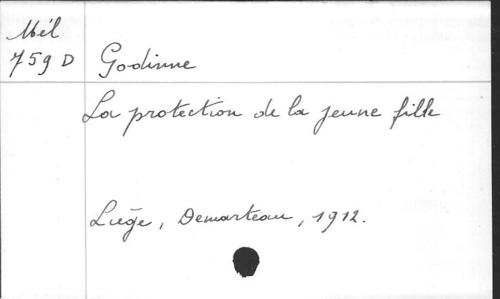 Mél
759 D Godinne
La protection de la jeune fille
Liège, Demarteau, 1912.